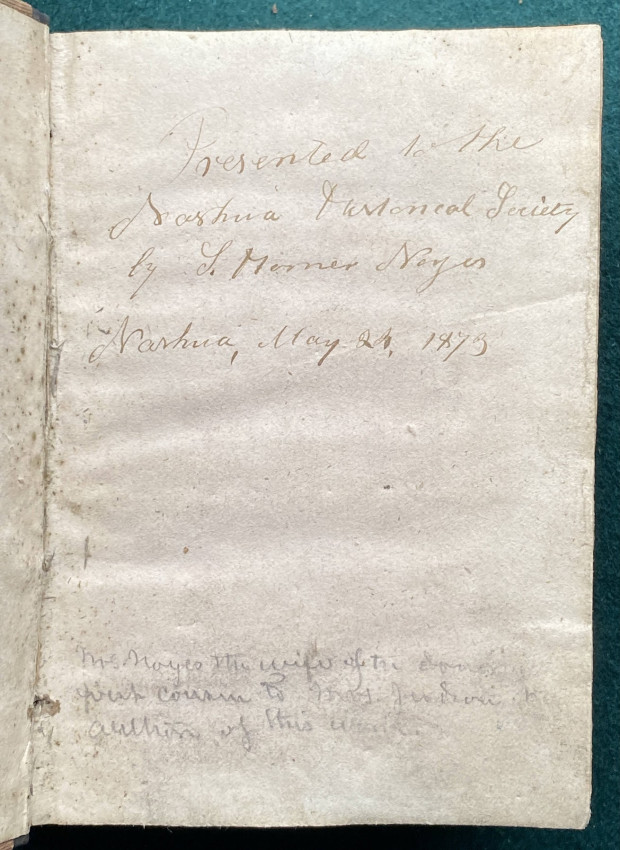 Presented to the
Nashua Historical Society
by L. Homer Noyes
Nashua, May 24, 1873
Mrs Noyes the wife of the donor
first cousin to Mrs. Judson the
author of this work.